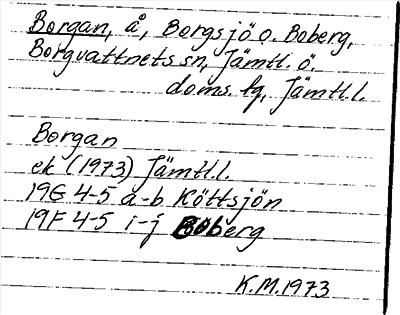 Borgan, å, Borgsjö o. Boberg,
Borgvattnets sn, Jämtl. ö.
doms. lg, Jämtl.l.
Borgan
ek (1973) Jämtl.l.
19G 4-5 a-b Köttsjön
19F 4-5 i-j Boberg
K.M.1973